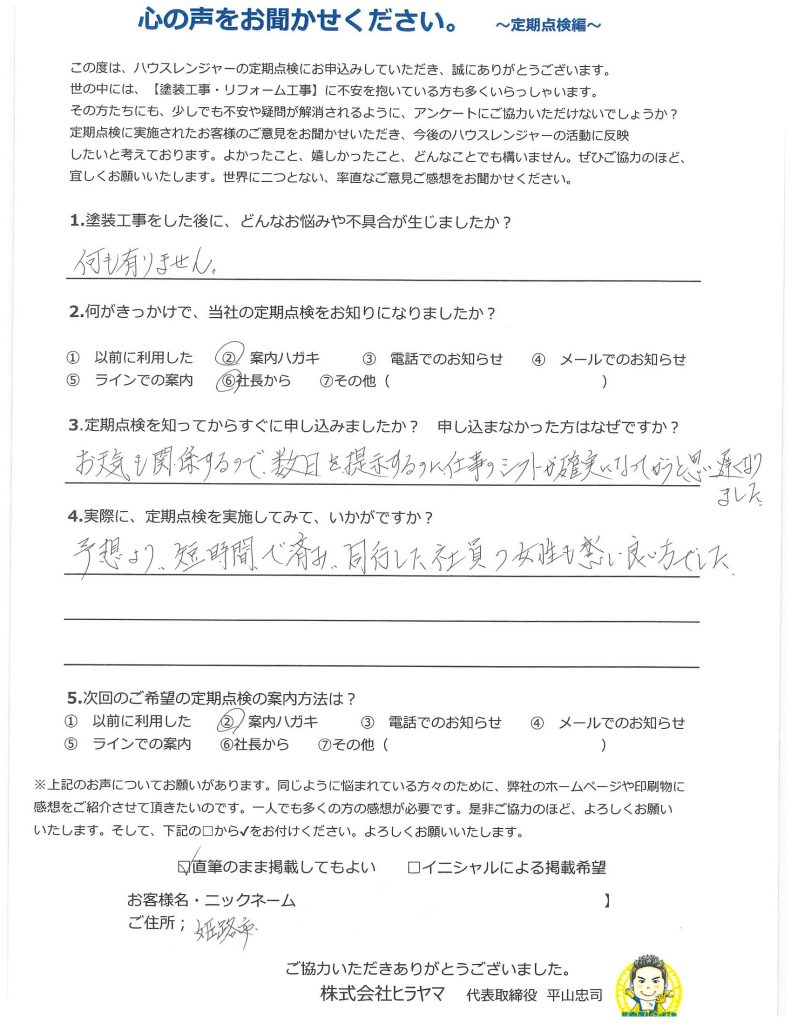 心の声をお聞かせください。 ～定期点検編～
この度は、ハウスレンジャーの定期点検にお申込みしていただき、誠にありがとうございます。
世の中には、【塗装工事・リフォーム工事】に不安を抱いている方も多くいらっしゃいます。
その方たちにも、少しでも不安や疑問が解消されるように、アンケートにご協力いただけないでしょうか？
定期点検に実施されたお客様のご意見をお聞かせいただき、今後のハウスレンジャーの活動に反映
したいと考えております。よかったこと、嬉しかったこと、どんなことでも構いません。ぜひご協力のほど、
宜しくお願いいたします。世界に二つとない、率直なご意見ご感想をお聞かせください。
1.塗装工事をした後に、どんなお悩みや不具合が生じましたか？
何も有りません。
2.何がきっかけで、当社の定期点検をお知りになりましたか？
① 以前に利用した ② 案内ハガキ ③ 電話でのお知らせ ④ メールでのお知らせ
⑤ ラインでの案内 ⑥社長から ⑦その他（ ）
3.定期点検を知ってからすぐに申し込みましたか？ 申し込まなかった方はなぜですか？
お天気も関係するので、数日を提示するのに仕事のシフトが確実になってからと思い遅くなり
ました
4.実際に、定期点検を実施してみて、いかがですか？
予想より、短時間で済み、同行した社員の女性も感じ良い方でした。
5.次回のご希望の定期点検の案内方法は？
① 以前に利用した ② 案内ハガキ ③ 電話でのお知らせ ④ メールでのお知らせ
⑤ ラインでの案内 ⑥社長から ⑦その他（ ）
※上記のお声についてお願いがあります。同じように悩まれている方々のために、弊社のホームページや印刷物に
感想をご紹介させて頂きたいのです。一人でも多くの方の感想が必要です。是非ご協力のほど、よろしくお願い
いたします。そして、下記の□から✓をお付けください。よろしくお願いいたします。
☑直筆のまま掲載してもよい □イニシャルによる掲載希望
お客様名・ニックネーム 】
ご住所； 姫路市
ご協力いただきありがとうございました。
株式会社ヒラヤマ 代表取締役 平山忠司